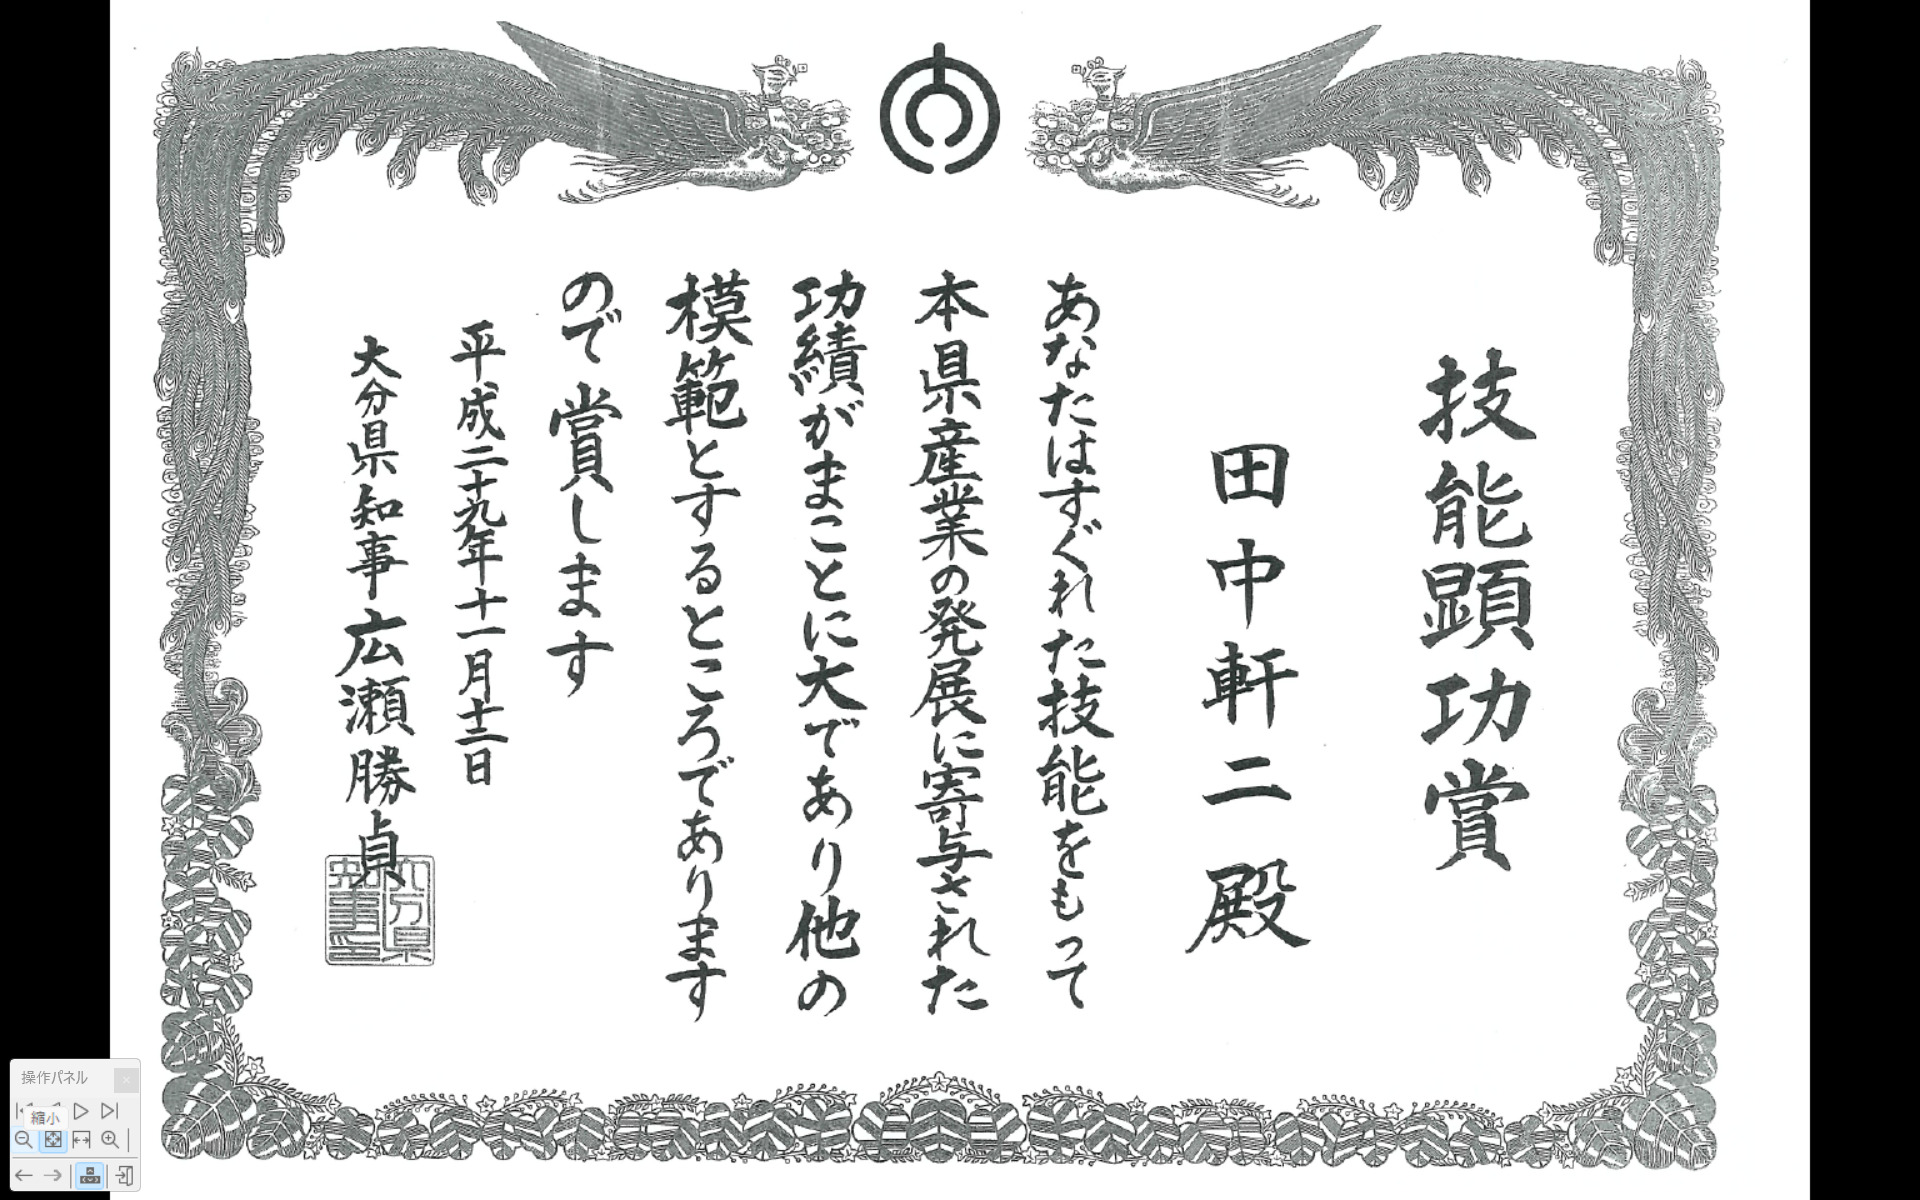 技能顕功賞
田中軒二殿
あなたはすぐれた技能をもって
本県産業の発展に寄与された
功績がまことに大であり他の
模範とするところであります
ので賞します
平成二十九年十一月十三日
大分県知事広瀬勝貞
大分県
知事印
操作パネル
縮小